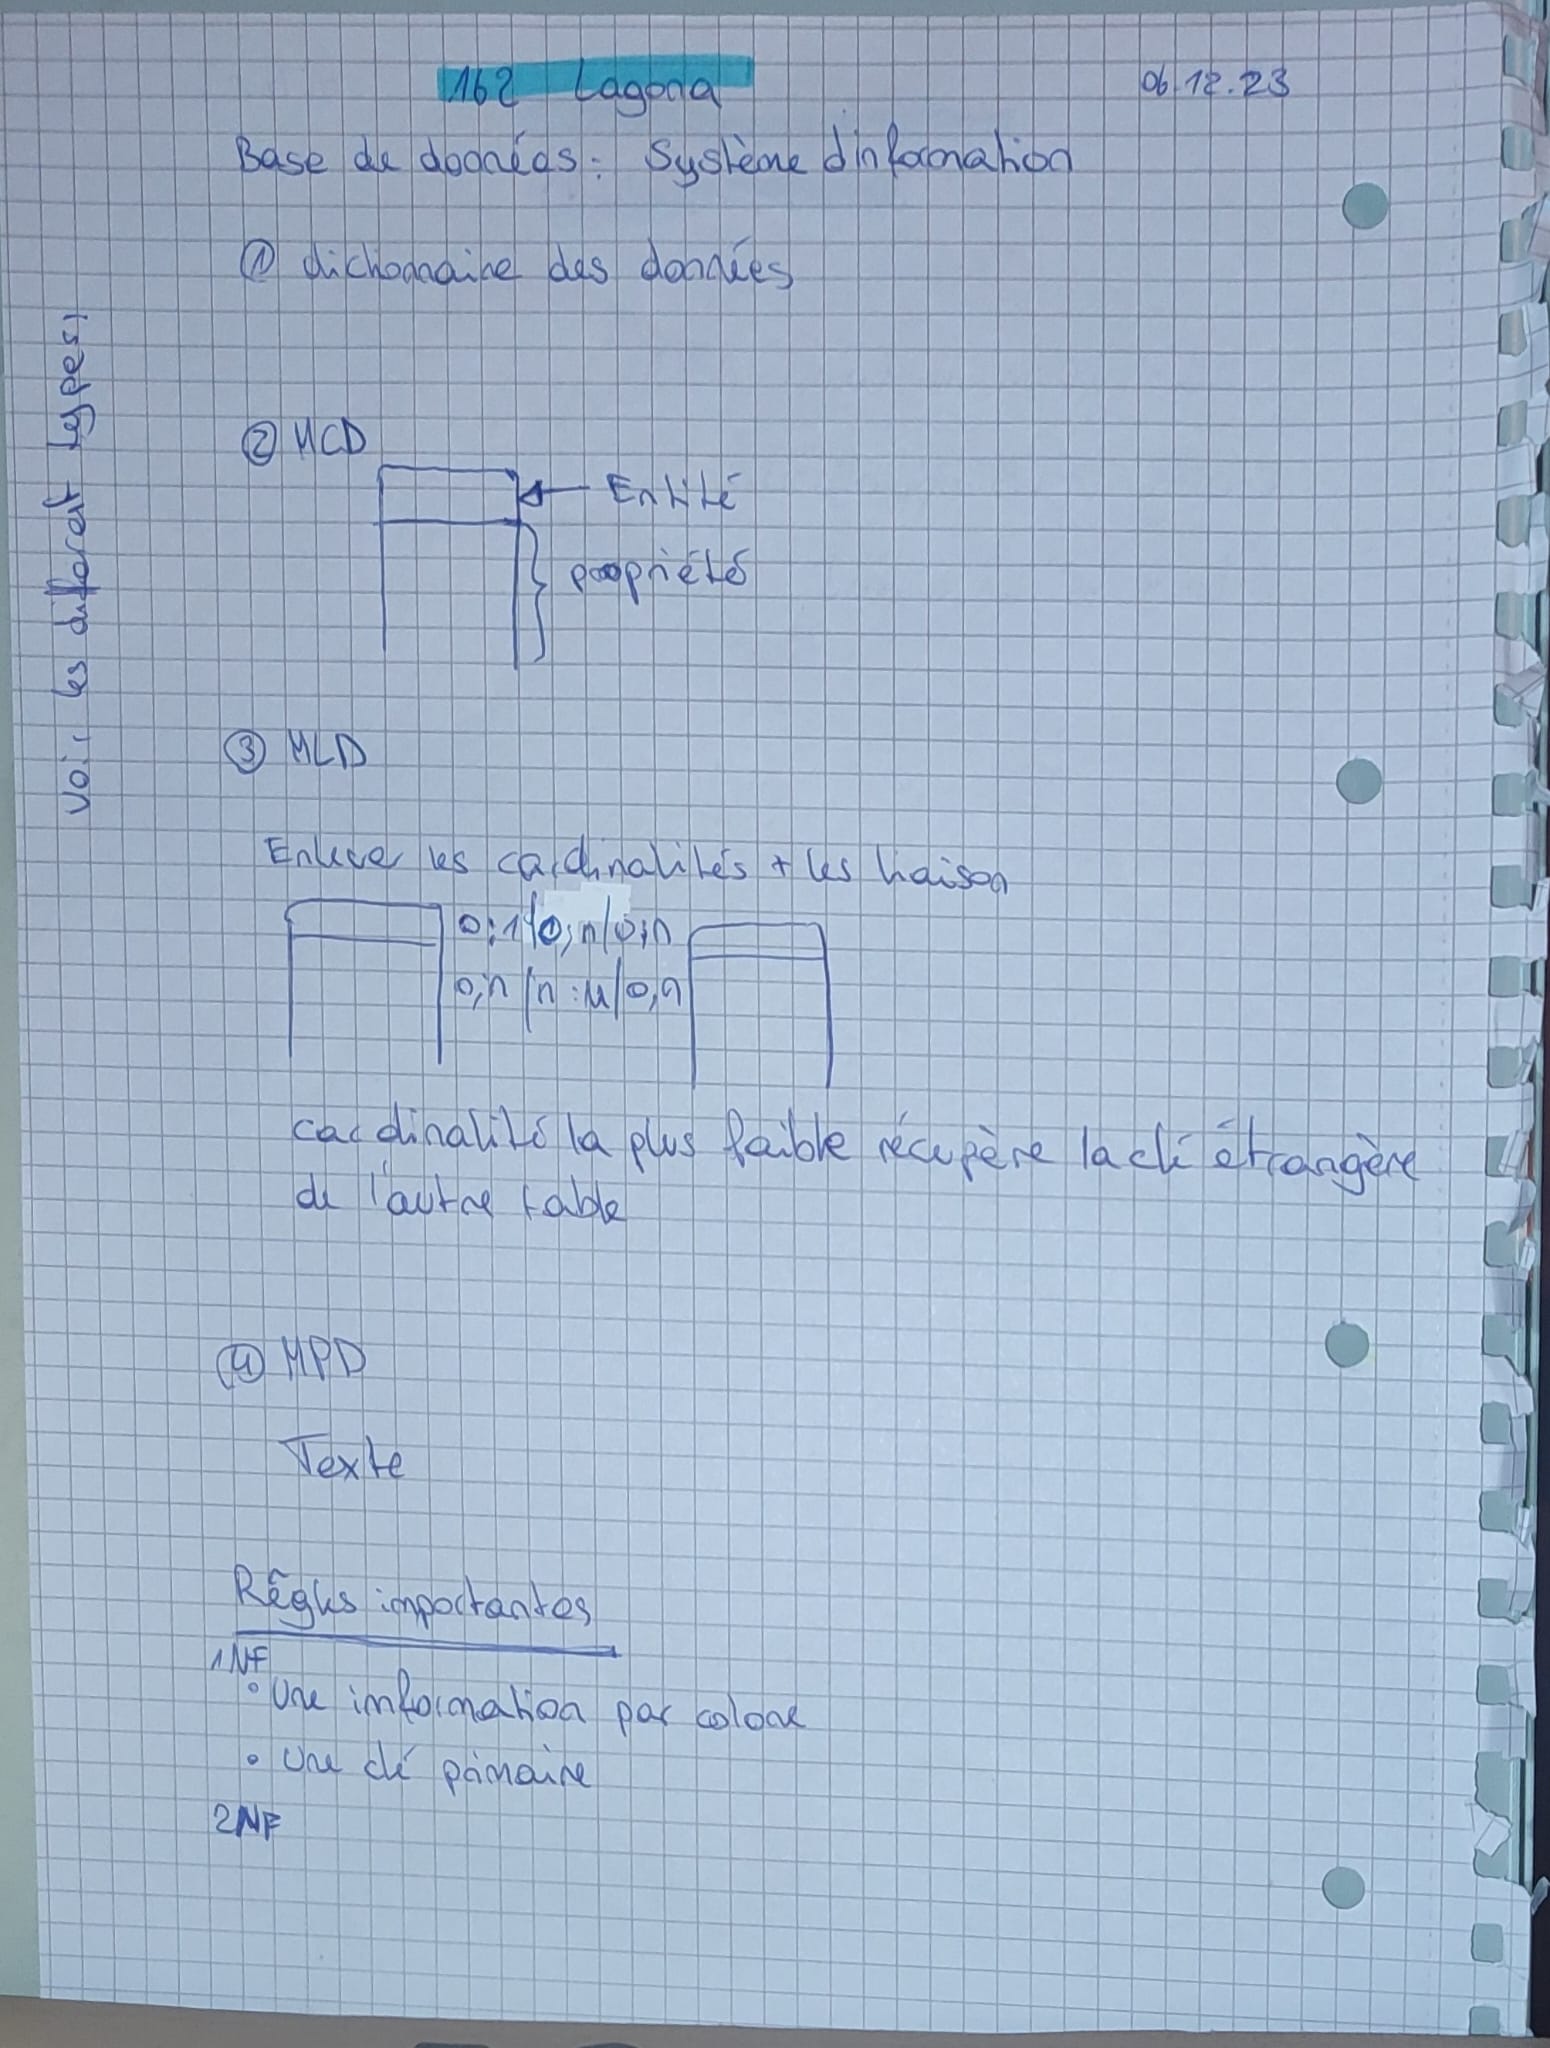 162 Lagona
06.12.23
Base de données : Système d'information
① dictionnaire des données
voir les diferent types
② MCD
Entité
propriété
③ MLD
Enlever les cardinalités + les liaison
0,n
0,n / n:M / 0,n
cardinalité la plus faible récupère la clé étrangère
de l'autre table
④ MPD
Texte
Règles importantes
1NF
• Une information par colone
• Une clé primaire
2NF